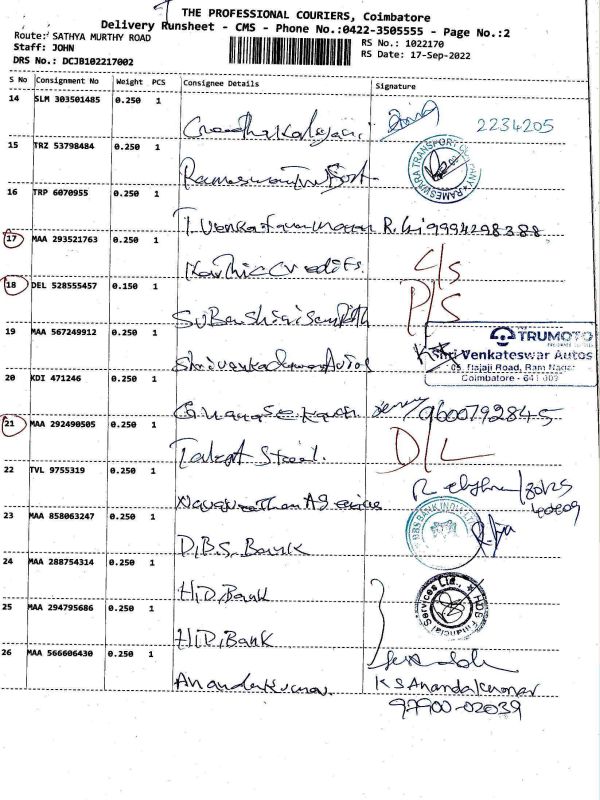 THE PROFESSIONAL COURIERS, Coimbatore
Delivery Runsheet - CMS - Phone No.:0422-3505555 - Page No.:2
Route: SATHYA MURTHY ROAD
Staff: JOHN
DRS No.: DCJB102217002
RS No.: 1022170
RS Date: 17-Sep-2022
S No Consignment No Weight PCS Consignee Details Signature
14 SLM 303501485 0.250 1
2234205
15 TRZ 53798484 0.250 1
RAMESWARA TRANSPORT COMPANY
16 TRP 6070955 0.250 1
9994298388
17 MAA 293521763 0.250 1 Karthic Credits C/S
18 DEL 528555457 0.150 1 P/S
19 MAA 567249912 0.250 1 Shri Venkateswar Autos
TRUMOTO
Shri Venkateswar Autos
Coimbatore - 641 009
20 KDI 471246 0.250 1 9600792845
21 MAA 292490505 0.250 1 Talent Steel. D/L
22 TVL 9755319 0.250 1 Navarathan Agencies
23 MAA 858063247 0.250 1 D.B.S. Bank
DBS BANK INDIA LTD
24 MAA 288754314 0.250 1 H.D. Bank
HDB Financial Services Ltd.,
25 MAA 294795686 0.250 1 H.D. Bank
26 MAA 566606430 0.250 1 Anandakumar
K S Anandakumar
97900-02039